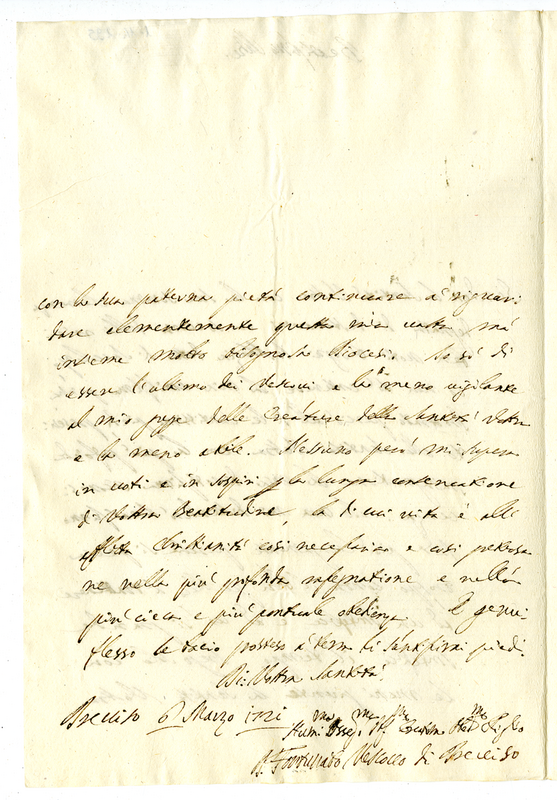 con la sua paterna pietà continuare a riguar
dare clementemente questa mia vasta mà
insieme molto bisognosa Diocesi. Io sò di
essere l'ultimo dei Vescovi e la meno vigilante
al mio gregge delle Creature della Santità Vostra
e la meno abile. Nessuno però mi supera
in voti e in sospiri p la lunga conservatione
di Vostra Beatitudine, la di cui vita è all'
afflitta Christianità così necessaria e così pretiosa
ne nella più profonda rassegnatione e nella
più cieca e più pontuale obedienza. E genu
flesso le bacio prostrato a terra li Santissimi piedi.
Di Vostra Santità.
6 Marzo 1721
Vescovo di